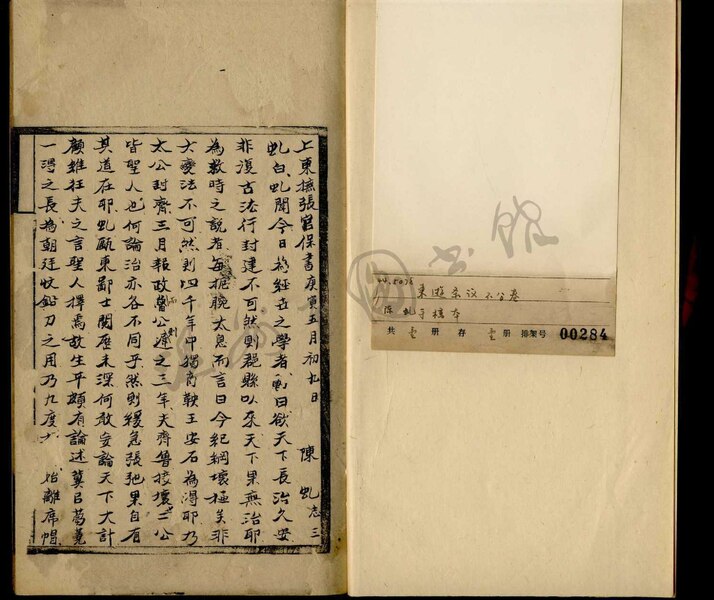 上東撫張宮保書庚寅五月初九日 陳虬志三
虬白虬聞今日為經世之學者動曰欲天下長治久安
非復古法行封建不可然則郡縣以來天下果無治耶
為救時之說者每扼腕太息而言曰今紀綱壞極矣非
大變法不可然則四千年中獨商鞅王安石為得耶乃
太公封齊三月報政魯公遲之三年夫齊魯接壤二公
皆聖人也何論治亦各不同乎然則緩急張弛果自有
其道在耶虬甌東鄙士閱歷未深何敢妄論天下大計
顧雖狂夫之言聖人擇焉故生平頗有論述冀以芻蕘
一得之長為朝廷收鉛刀之用乃九度 始離席帽
東遊条议不分卷
陈虬手稿本
共 壹 册 存 壹 册 排架号 00284